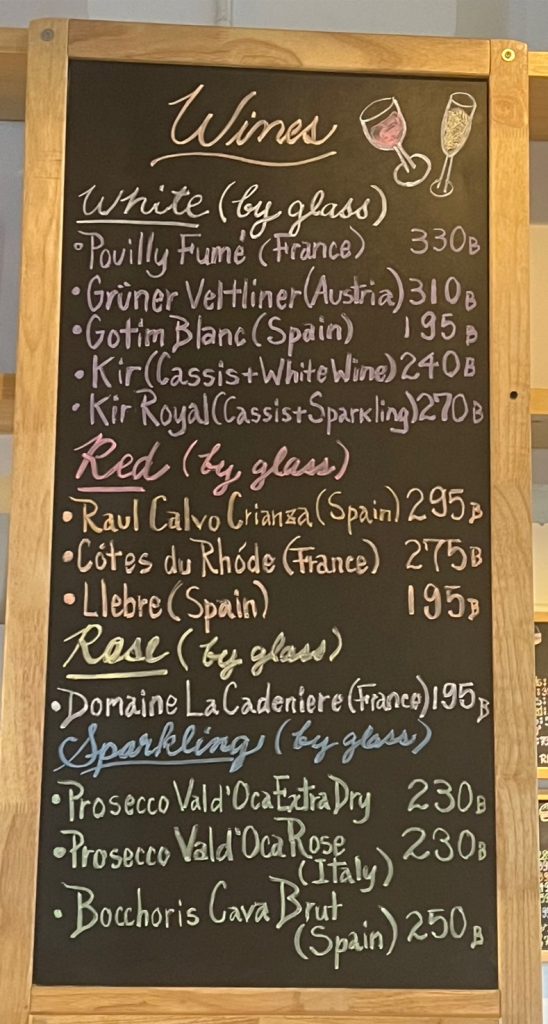 Wines
White (by glass)
• Pouilly Fumé (France) 330B
• Grüner Veltliner (Austria) 310B
• Gotim Blanc (Spain) 195B
• Kir (Cassis+White Wine) 240B
• Kir Royal (Cassis+Sparkling) 270B
Red (by glass)
• Raul Calvo Crianza (Spain) 295B
• Côtes du Rhóde (France) 275B
• Llebre (Spain) 195B
Rose (by glass)
• Domaine La Cadeniere (France) 195B
Sparkling (by glass)
• Prosecco Val d'Oca Extra Dry 230B
• Prosecco Val d'Oca Rose 230B
(Italy)
• Bocchoris Cava Brut
(Spain) 250B